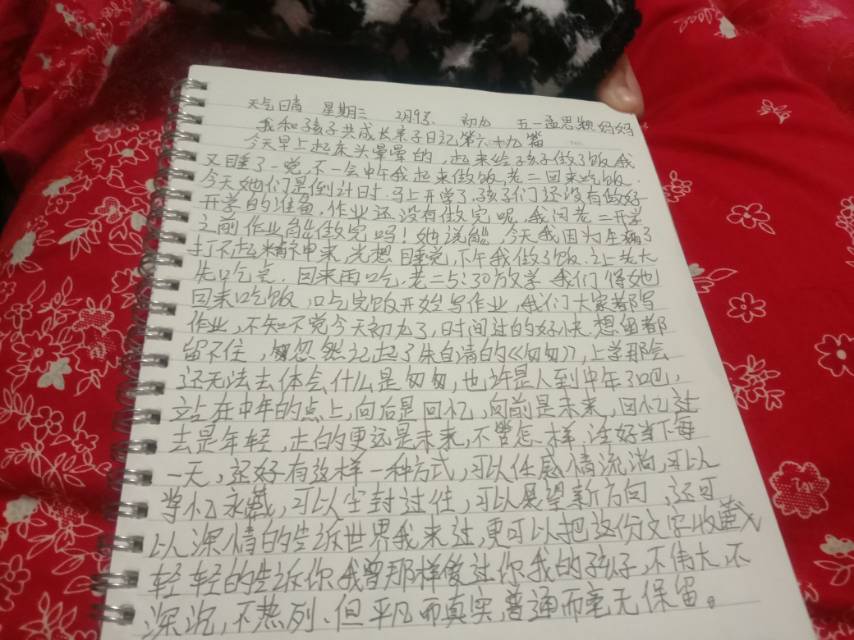 天气日青 星期三 2月9号. 初九 五一孟思颖妈妈
我和孩子共成长亲子日记第六十九篇
今天早上起床头晕晕的,起来给孩子做了饭,我
又睡了一觉,不一会中午我起来做饭,老二回来吃饭.
今天她们是倒计时.马上开学了,孩子们还没有做好
开学的准备,作业还没有做完呢,我问老二开学
之前作业能做完吗!她说能,今天我因为生病了
打不起精神来,光想睡觉,下午我做了饭.让老大
先吃完.回来再吃.老二5:30放学 我们等她
回来吃饭,吃完饭开始写作业,我们大家都写
作业,不知不觉今天初九了,时间过的好快.想留都
留不住,忽然记起了朱自清的《匆匆》,上学那会
还无法去体会什么是匆匆,也许是人到中年了吧,
站在中年的点上,向后是回忆,向前是未来,回忆过
去是年轻,走的更远是未来,不管怎样,过好当下每
一天,还好有这样一种方式,可以任感情流淌,可以
掌忆永藏,可以尘封过往,可以展望新方向,还可
以深情的告诉世界我来过,更可以把这份文字收藏
轻轻的告诉你,我曾那样爱过你我的孩子,不伟大,不
深沉,不热列、但平凡而真实,普通而毫无保留。